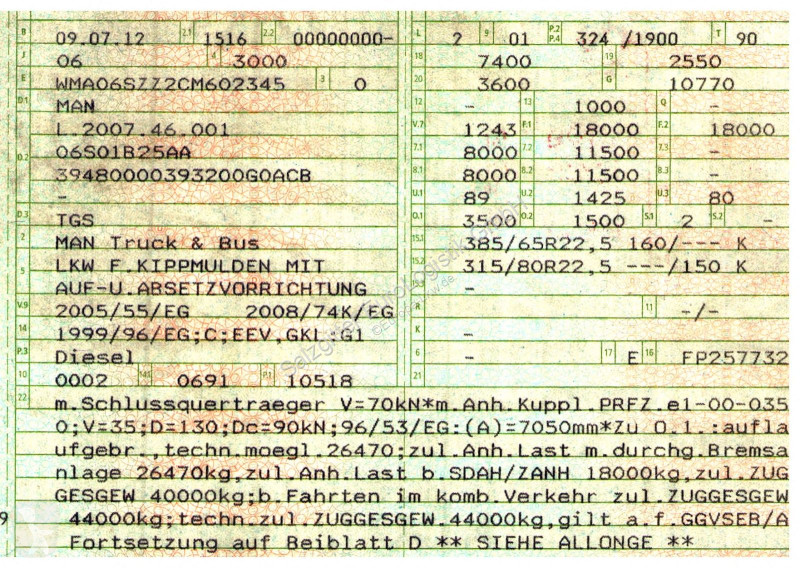 B 09.07.12 2.1 1516 2.2 00000000-
J 06 4 3000
E WMA06SZZ2CM602345 3 0
D.1 MAN
L.2007.46.001
D.2 06S01B25AA
39480000393200G0ACB
-
D.3 TGS
2 MAN Truck & Bus
5 LKW F.KIPPMULDEN MIT
AUF-U.ABSETZVORRICHTUNG
V.9 2005/55/EG 2008/74K/EG
14 1999/96/EG;C;EEV,GKL:G1
P.3 Diesel
10 0002 14.1 0691 P.1 10518
L 2 9 01 P.2 P.4 324 /1900 T 90
18 7400 19 2550
20 3600 G 10770
12 - 13 1000 Q -
V.7 1243 F.1 18000 F.2 18000
7.1 8000 7.2 11500 7.3 -
8.1 8000 8.2 11500 8.3 -
U.1 89 U.2 1425 U.3 80
O.1 3500 O.2 1500 S.1 2 S.2 -
15.1 385/65R22,5 160/--- K
15.2 315/80R22,5 ---/150 K
15.3 -
R 11 -/-
K -
6 - 17 E 16 FP257732
21
22 m.Schlussquertraeger V=70kN*m.Anh.Kuppl.PRFZ.e1-00-035
0;V=35;D=130;Dc=90kN;96/53/EG:(A)=7050mm*Zu O.1.:aufla
ufgebr.,techn.moegl.26470;zul.Anh.Last m.durchg.Bremsa
nlage 26470kg,zul.Anh.Last b.SDAH/ZANH 18000kg,zul.ZUG
GESGEW 40000kg;b.Fahrten im komb.Verkehr zul.ZUGGESGEW
9 44000kg;techn.zul.ZUGGESGEW.44000kg,gilt a.f.GGVSEB/A
Fortsetzung auf Beiblatt D ** SIEHE ALLONGE **